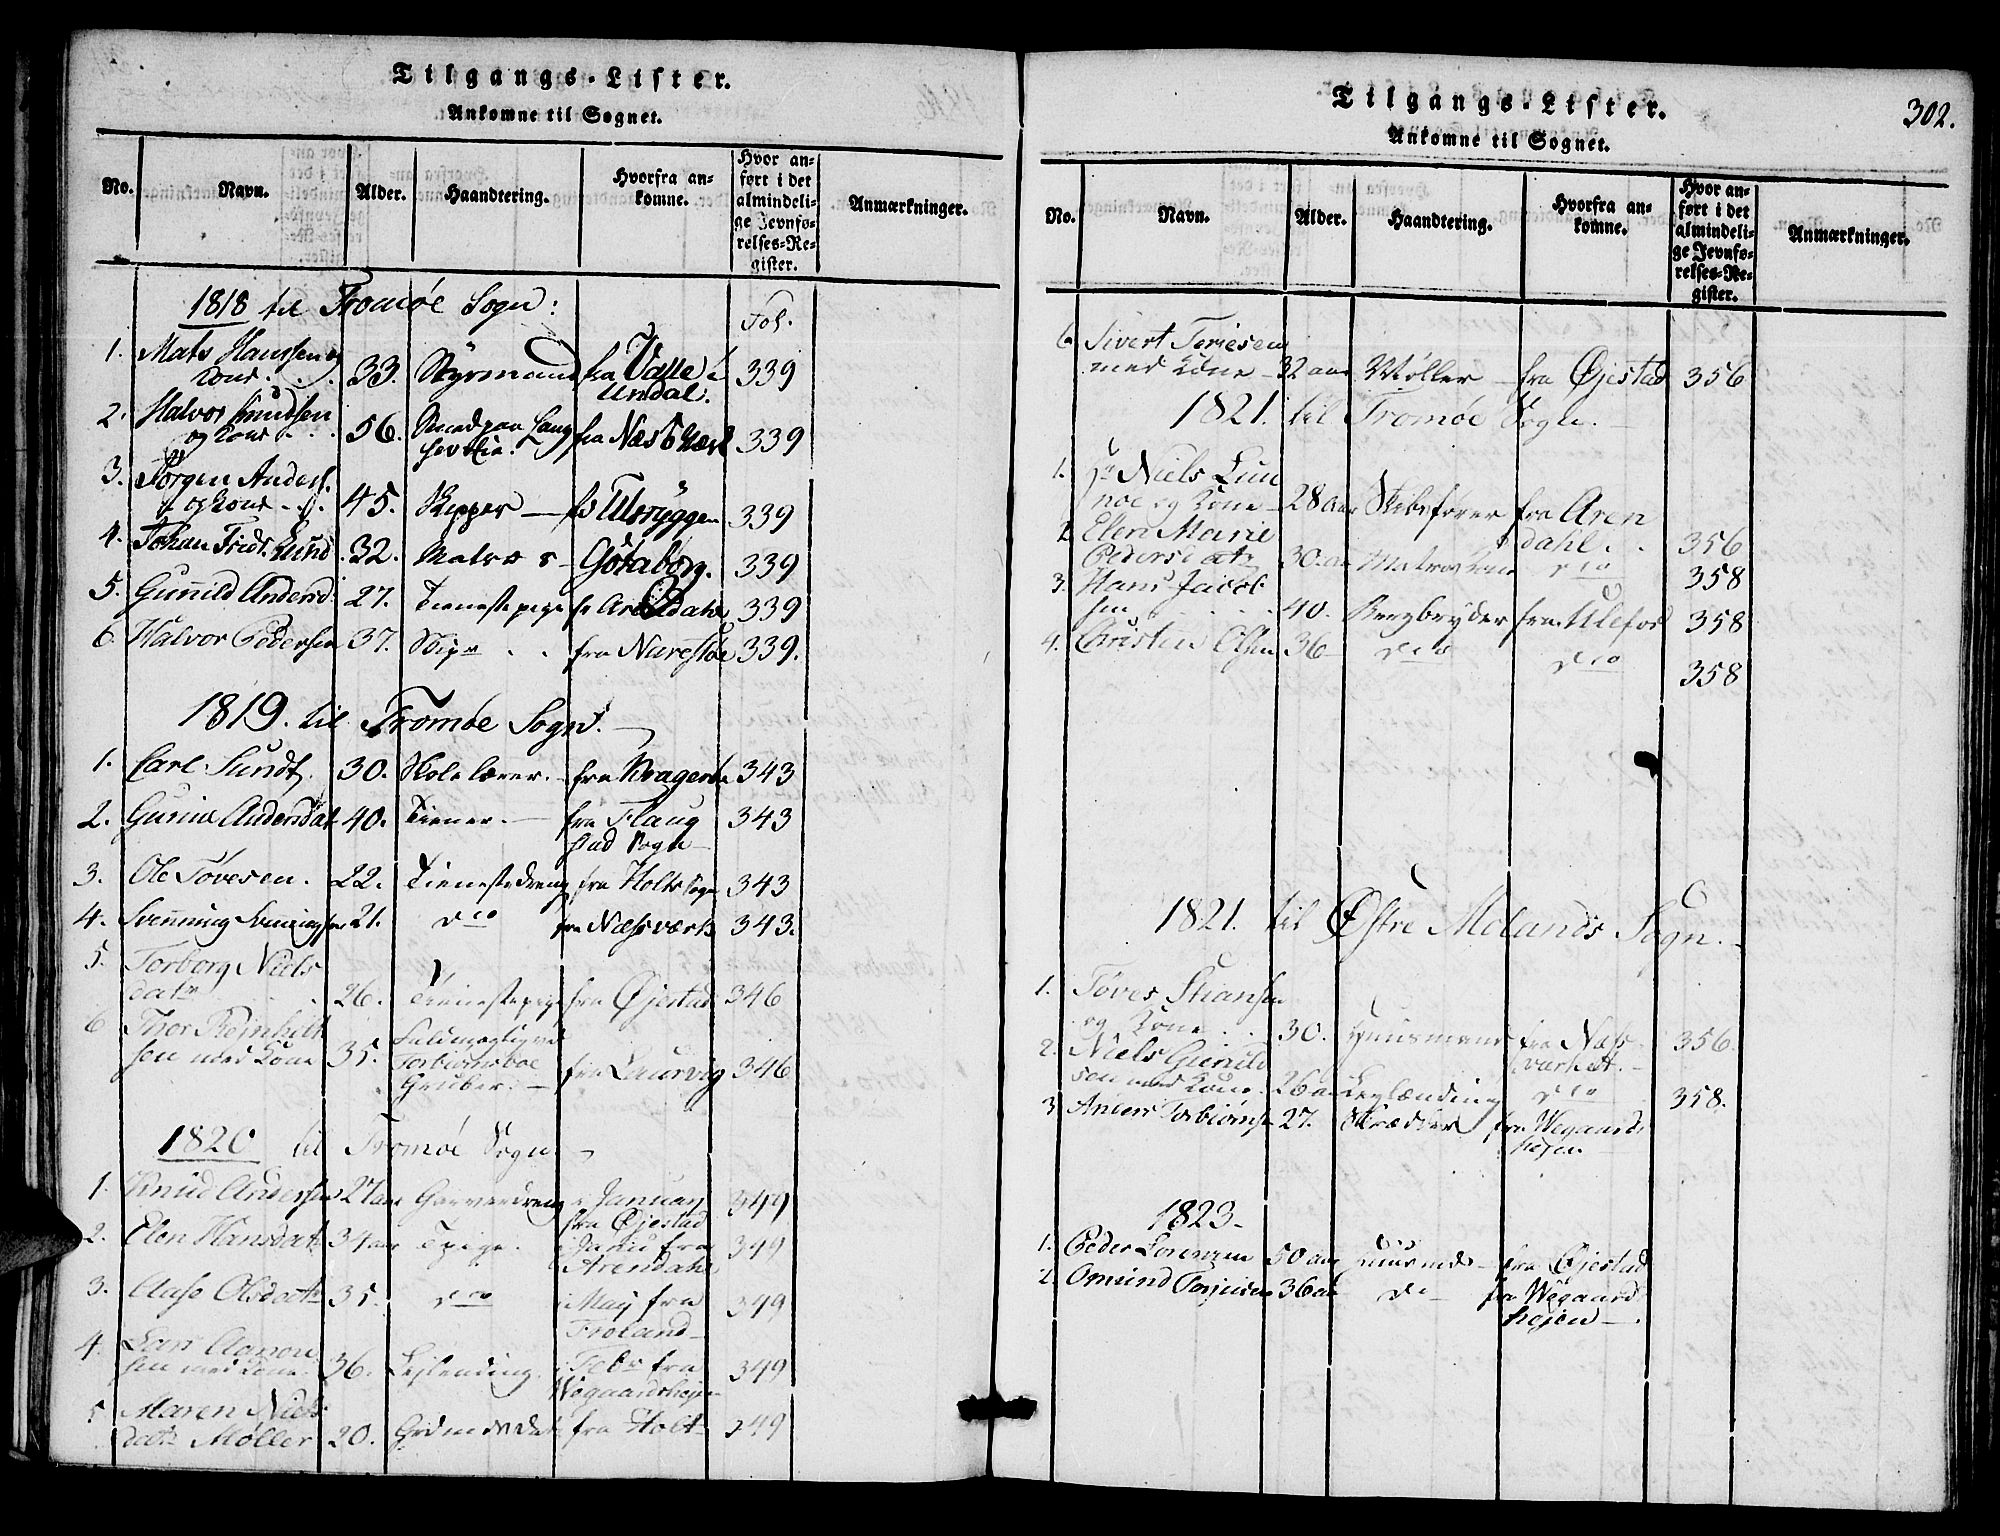 Tilgangs-Lister.
Ankomne til Sognet.
No. Navn. Alder. Haandtering. Hvorfra an-
komne. Hvor an-
ført i det
almindeli-
ge Jevnfø-
relses-Re-
gister. Anmærkninger.
1818 til Tromøe Sogn: Fol.
1. Mats Hanssen og
Kone 33. Styrmand fra Valle i
Undal. 339
2. Halvor Knudsen
og Kone 56. fra Næs Værk 339
3. Jørgen Anders.
og Kone 45. Skipper 339
4. Johan Fridr. Lund 32. Matros Götaborg. 339
5. Gunnild Andersd. 27. Tienestepige fr Arendahl 339
6. Halvor Pedersen 37. Skipr fra Narestøe 339.
1819. til Tromøe Sogn.
1. Carl Sundt. 30. Skolelærer. fra Kragerøe 343
2. Gunild Andersdat. 40. Tiener. fra Flaug
stad Sogn 343
3. Ole Tovesen. 22. Tienestedreng fra Holts Sogn 343
4. Svenning Svenings. 21. do fra Næssværk 343.
5. Torborg Niels
datr 26. Tienestepige fra Øjestad 346
6 Thor Reinhilt
sen med Kone 35. Fuldmægtig ved
Torbiørnsboe
Gruber. fra Laurvig 346
1820 til Tromøe Sogn
1. Knud Andersen 27 aar Garverdreng i Januar
fra Øjestad 349
2. Elen Hansdatr 34 aar Tpige. i Juni fra
Arendahl 349
3. Aase Olsdatr 35. do i May fra
Froland 349
4. Lars Aamon
sen med Kone 36. Lejlending. i Febr fra
Wegaardshejen 349
5 Maren Niels
datr Møller 20. fra Holt 349
Tilgangs-Lister.
Ankomne til Sognet.
302.
No. Navn. Alder. Haandtering. Hvorfra an-
komne. Hvor an-
ført i det
almindeli-
ge Jevnfø-
relses-Re-
gister. Anmærkninger.
6. Sivert Terjesen
med Kone 32 aar Møller fra Øjestad 356
1821. til Tromøe Sogn.
1. Hr Niels Lun
øe og Kone 28 aar Skibsfører fra Aren
dahl. 356
2 Elen Marie
Pedersdatr 30. aar Matroskone do 358
3. Hans Jacob
sen 40. Bergbryder fra Ulefos 358
4. Christen Olsen 36 do do 358
1821. til Østre Molands Sogn.
1. Toves Stiansen
og Kone 30. Huusmand fra Næs-
værket. 356.
2. Niels Gunild
sen med Kone 26 aar Leylænding do 358.
3 Anders Torbiørnsen 27. Skrædder fra Wegaards
hejen
1823.
1. Peder Lorenzen 50 aar Huusmd fra Øjestad
2. Omund Terjesen 36 aar do fra Wegaard
hejen